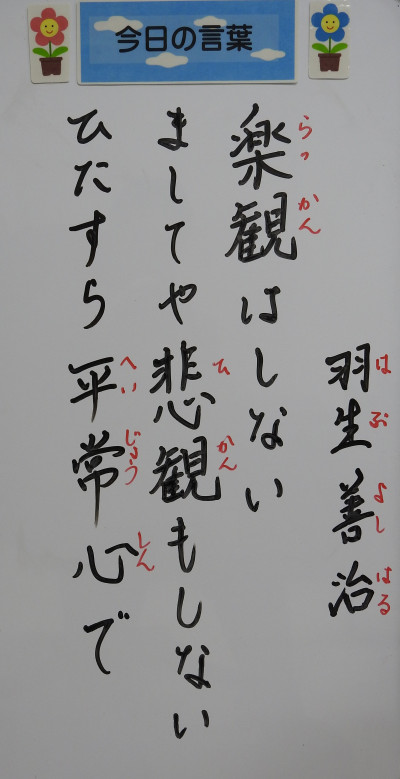 今日の言葉
羽生善治
はぶよしはる
楽観はしない
らっかん
ましてや悲観もしない
ひかん
ひたすら平常心で
へいじょうしん